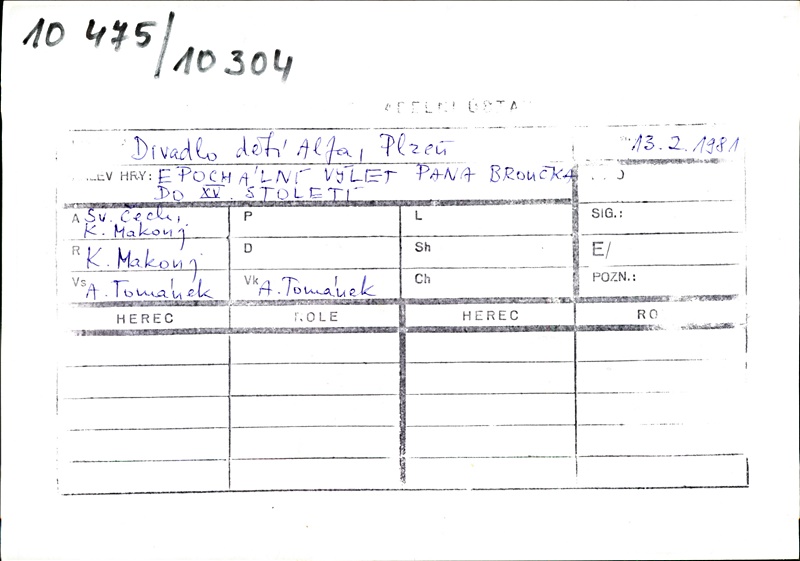 10 475/10 304
Divadlo dětí Alfa, Plzeň 13.2.1981
EV HRY: EPOCHÁLNÍ VÝLET PANA BROUČKA
DO XV. STOLETÍ
A Sv. Čech,
K. Makonj
P
L
SIG.:
R K. Makonj
D
Sh
E/
Vs A. Tománek
Vk A. Tománek
Ch
POZN.:
HEREC ROLE HEREC RO